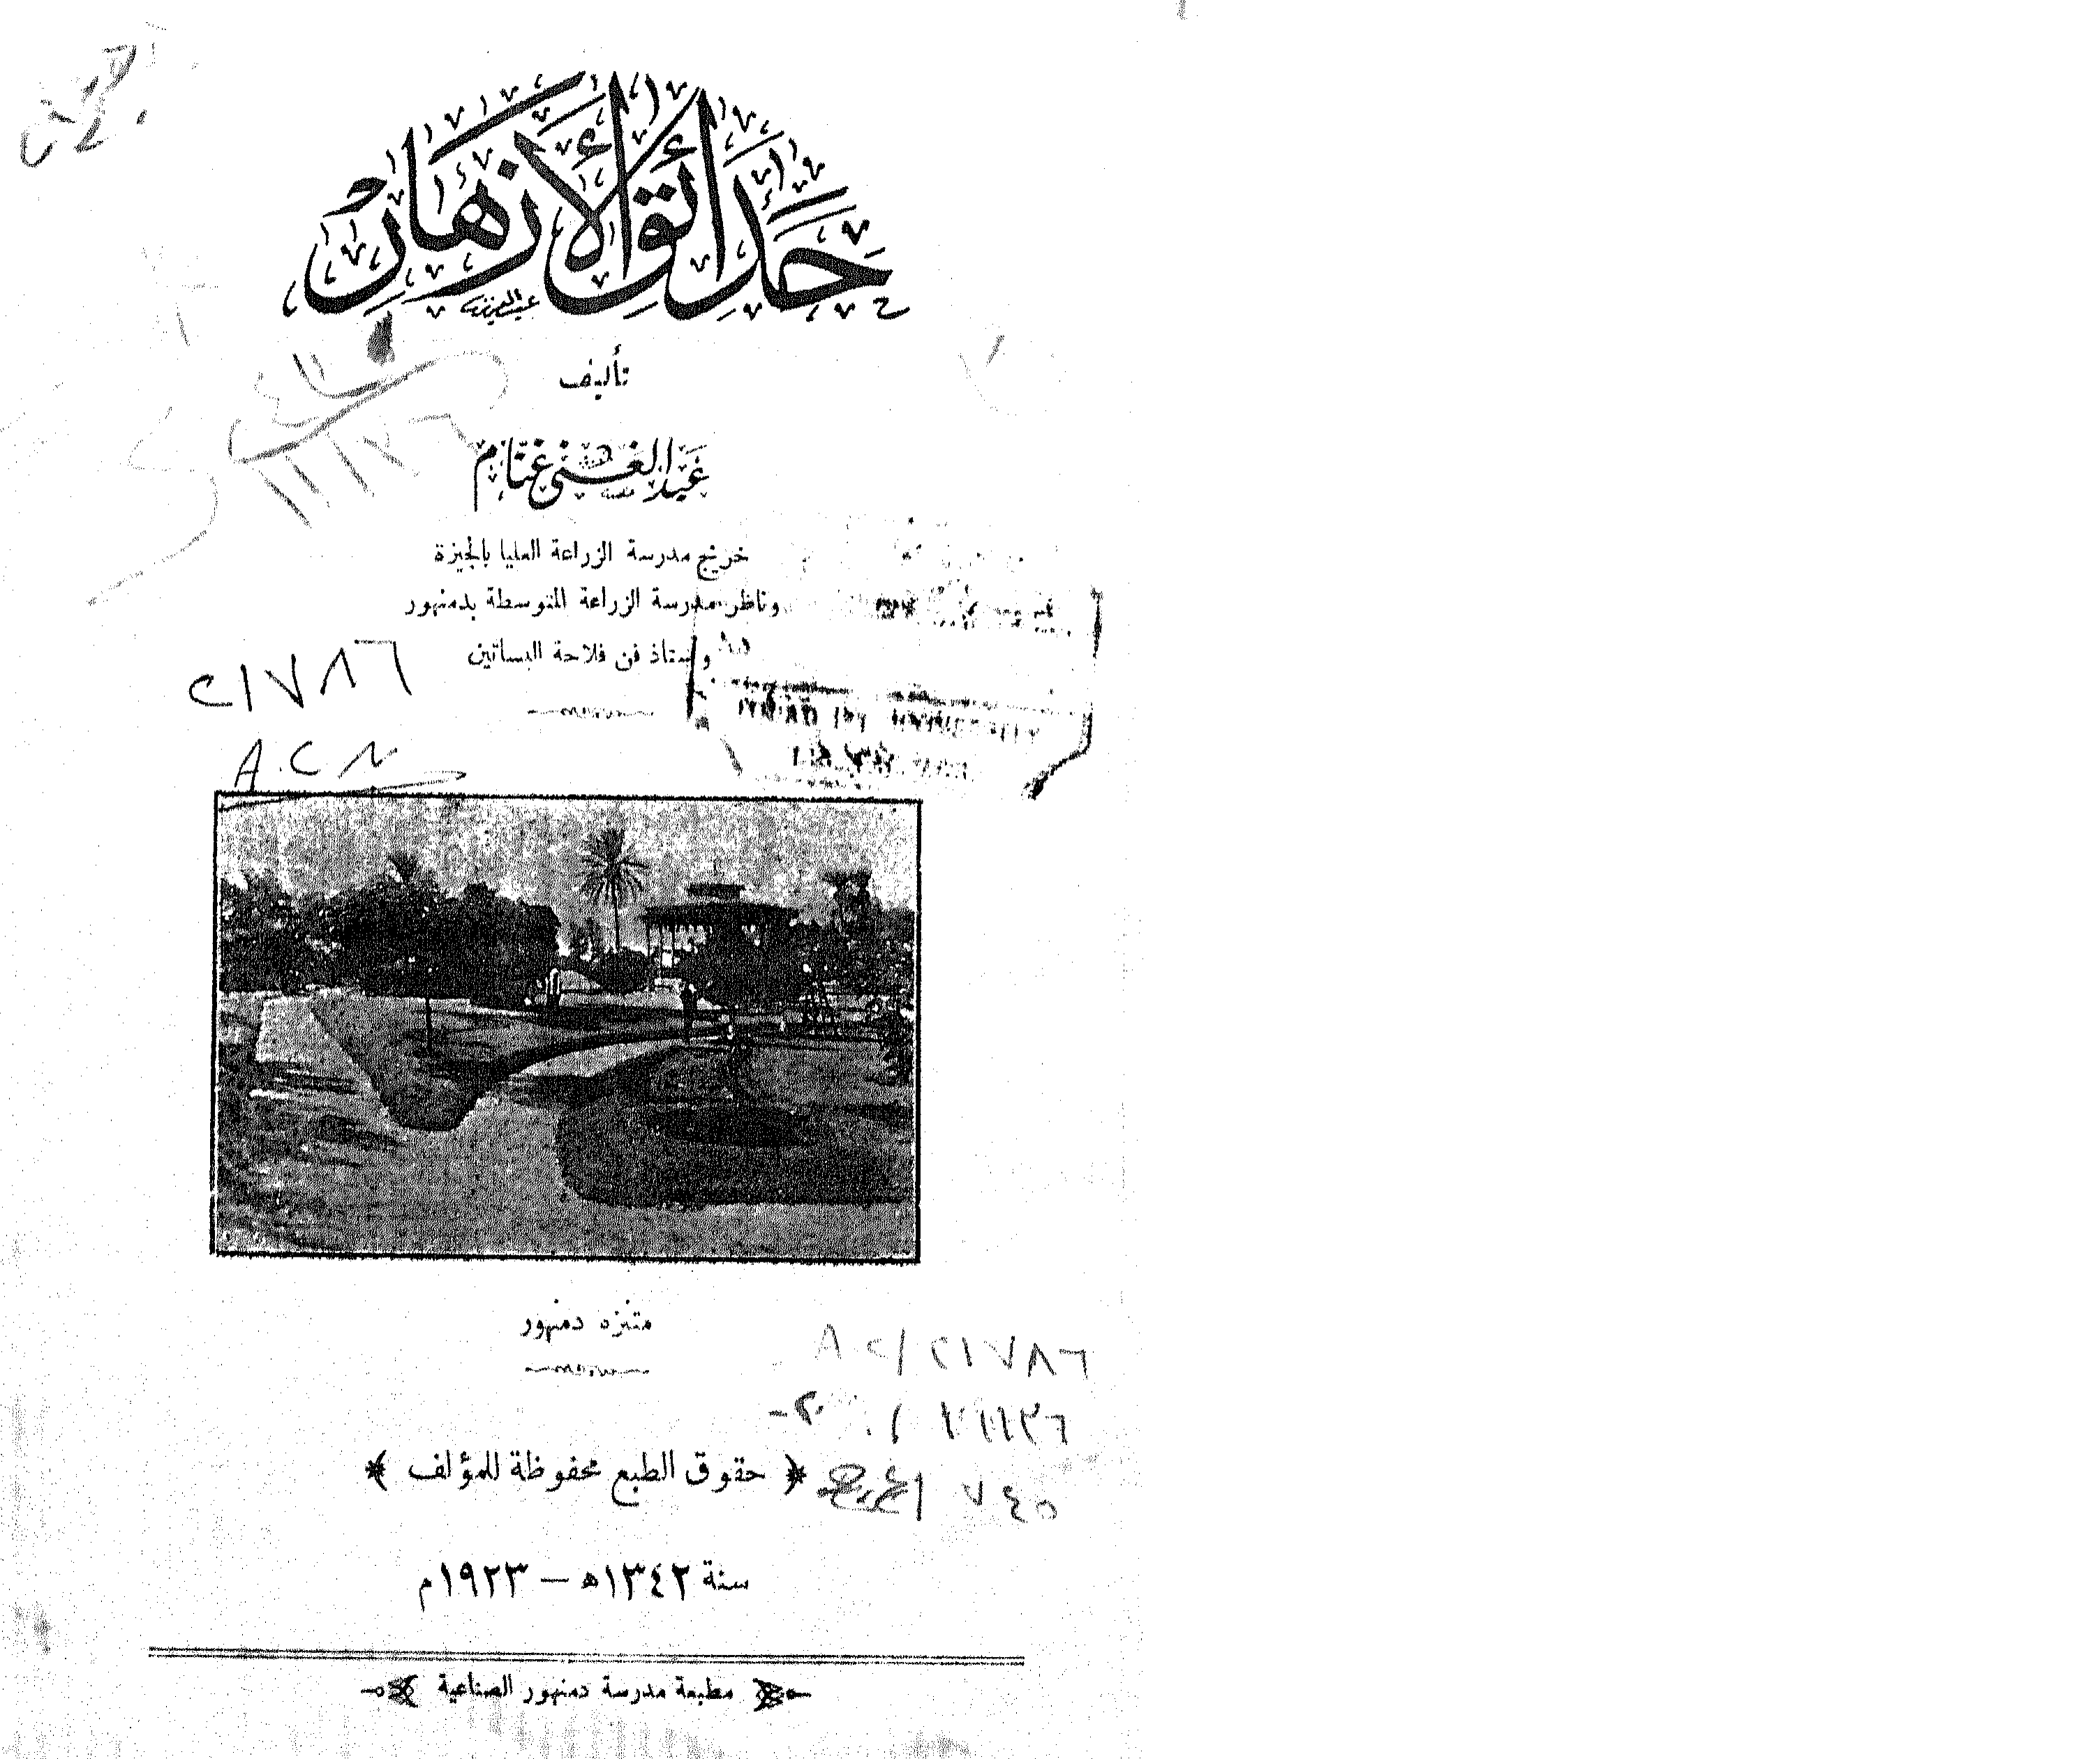 حدائق الأزهار
تأليف
عبد الغنى غنام
خريج مدرسة الزراعة العليا بالجيزة
وناظر مدرسة الزراعة المتوسطة بدمنهور
وأستاذ فن فلاحة البساتين
٢١٧٨٦
متنزه دمنهور
٨٢/٢١٧٨٦
﴿ حقوق الطبع محفوظة للمؤلف ﴾
٧٤٥
سنة ١٣٤٢ھ — ١٩٢٣م
مطبعة مدرسة دمنهور الصناعية